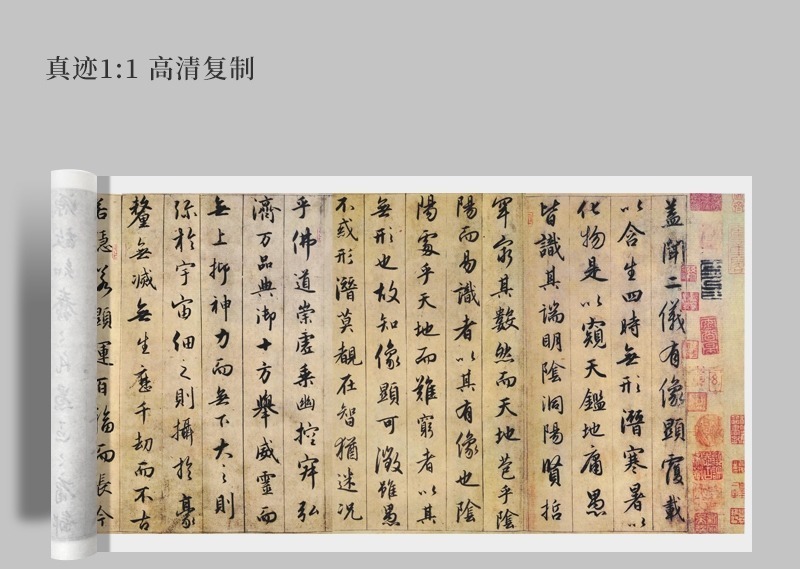 真迹1:1 高清复制
蓋聞二儀有像顯覆載
以含生四時無形潛寒暑以
化物是以窺天鑑地庸愚
皆識其端明陰洞陽賢哲
罕窮其數然而天地苞乎陰
陽而易識者以其有像也陰
陽處乎天地而難窮者以其
無形也故知像顯可徵雖愚
不惑形潛莫覩在智猶迷況
乎佛道崇虛乘幽控寂弘
濟万品典御十方舉威靈而
無上抑神力而無下大之則
弥於宇宙細之則攝於豪
釐無滅無生歷千劫而不古
若隱若顯運百福而長今